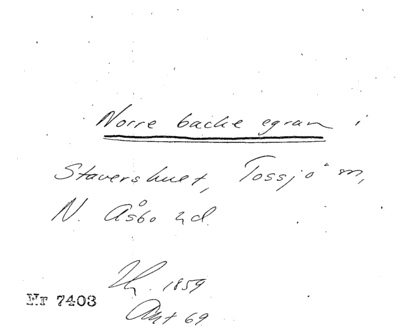 Norre backe egran i
Stavershult, Tossjö sn,
N. Åsbo hd.
1859
Nr 7403
69